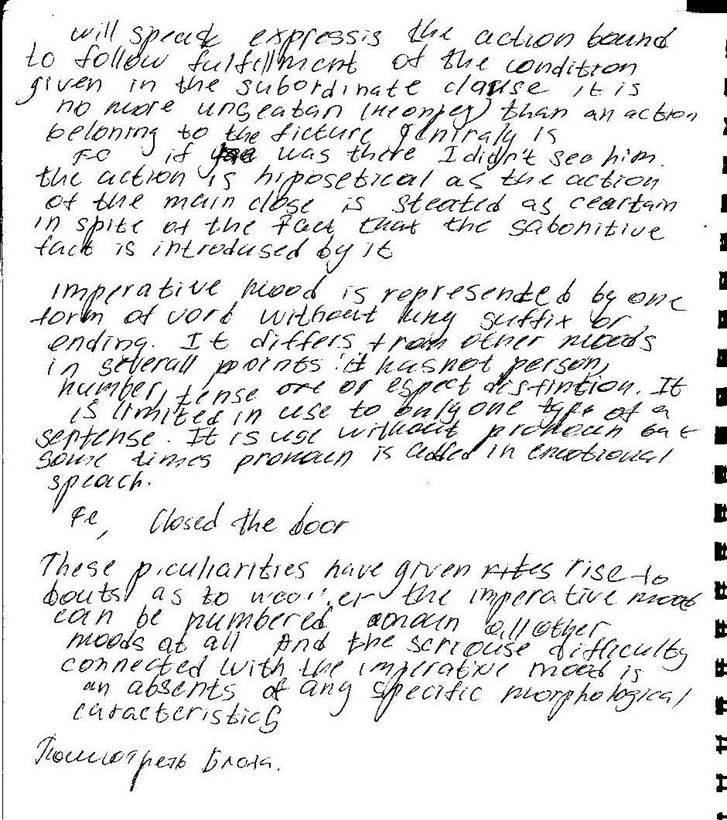 will speack expressis the action bound
to follow fulfillment of the condition
given in the subordinate clause it is
no more than an action
beloning to the ficture geniraly is
Fe if was there I didn't see him.
the action is hiposetical as the action
of the main close is steated as ceartain
in spite of the fact that the sabonitive
fact is introdused by it
imperative mood is represented by one
form of vord without any suffix or
ending. It differs from other moods
in severall points: it has not person,
number, tense ore or espect distintion. It
is limited in use to only one type of a
sentense. It is use without pronoun but
some times pronoun is added in emotional
speach.
Fe, Closed the door
These piculiarities have given rise to
bouts as to the imperative mood
can be numbered amoun all other
moods at all And the scriouse difficulty
connected with the imperative mood is
an absents of any specific morphological
caracteristics
Посмотреть Блоха.